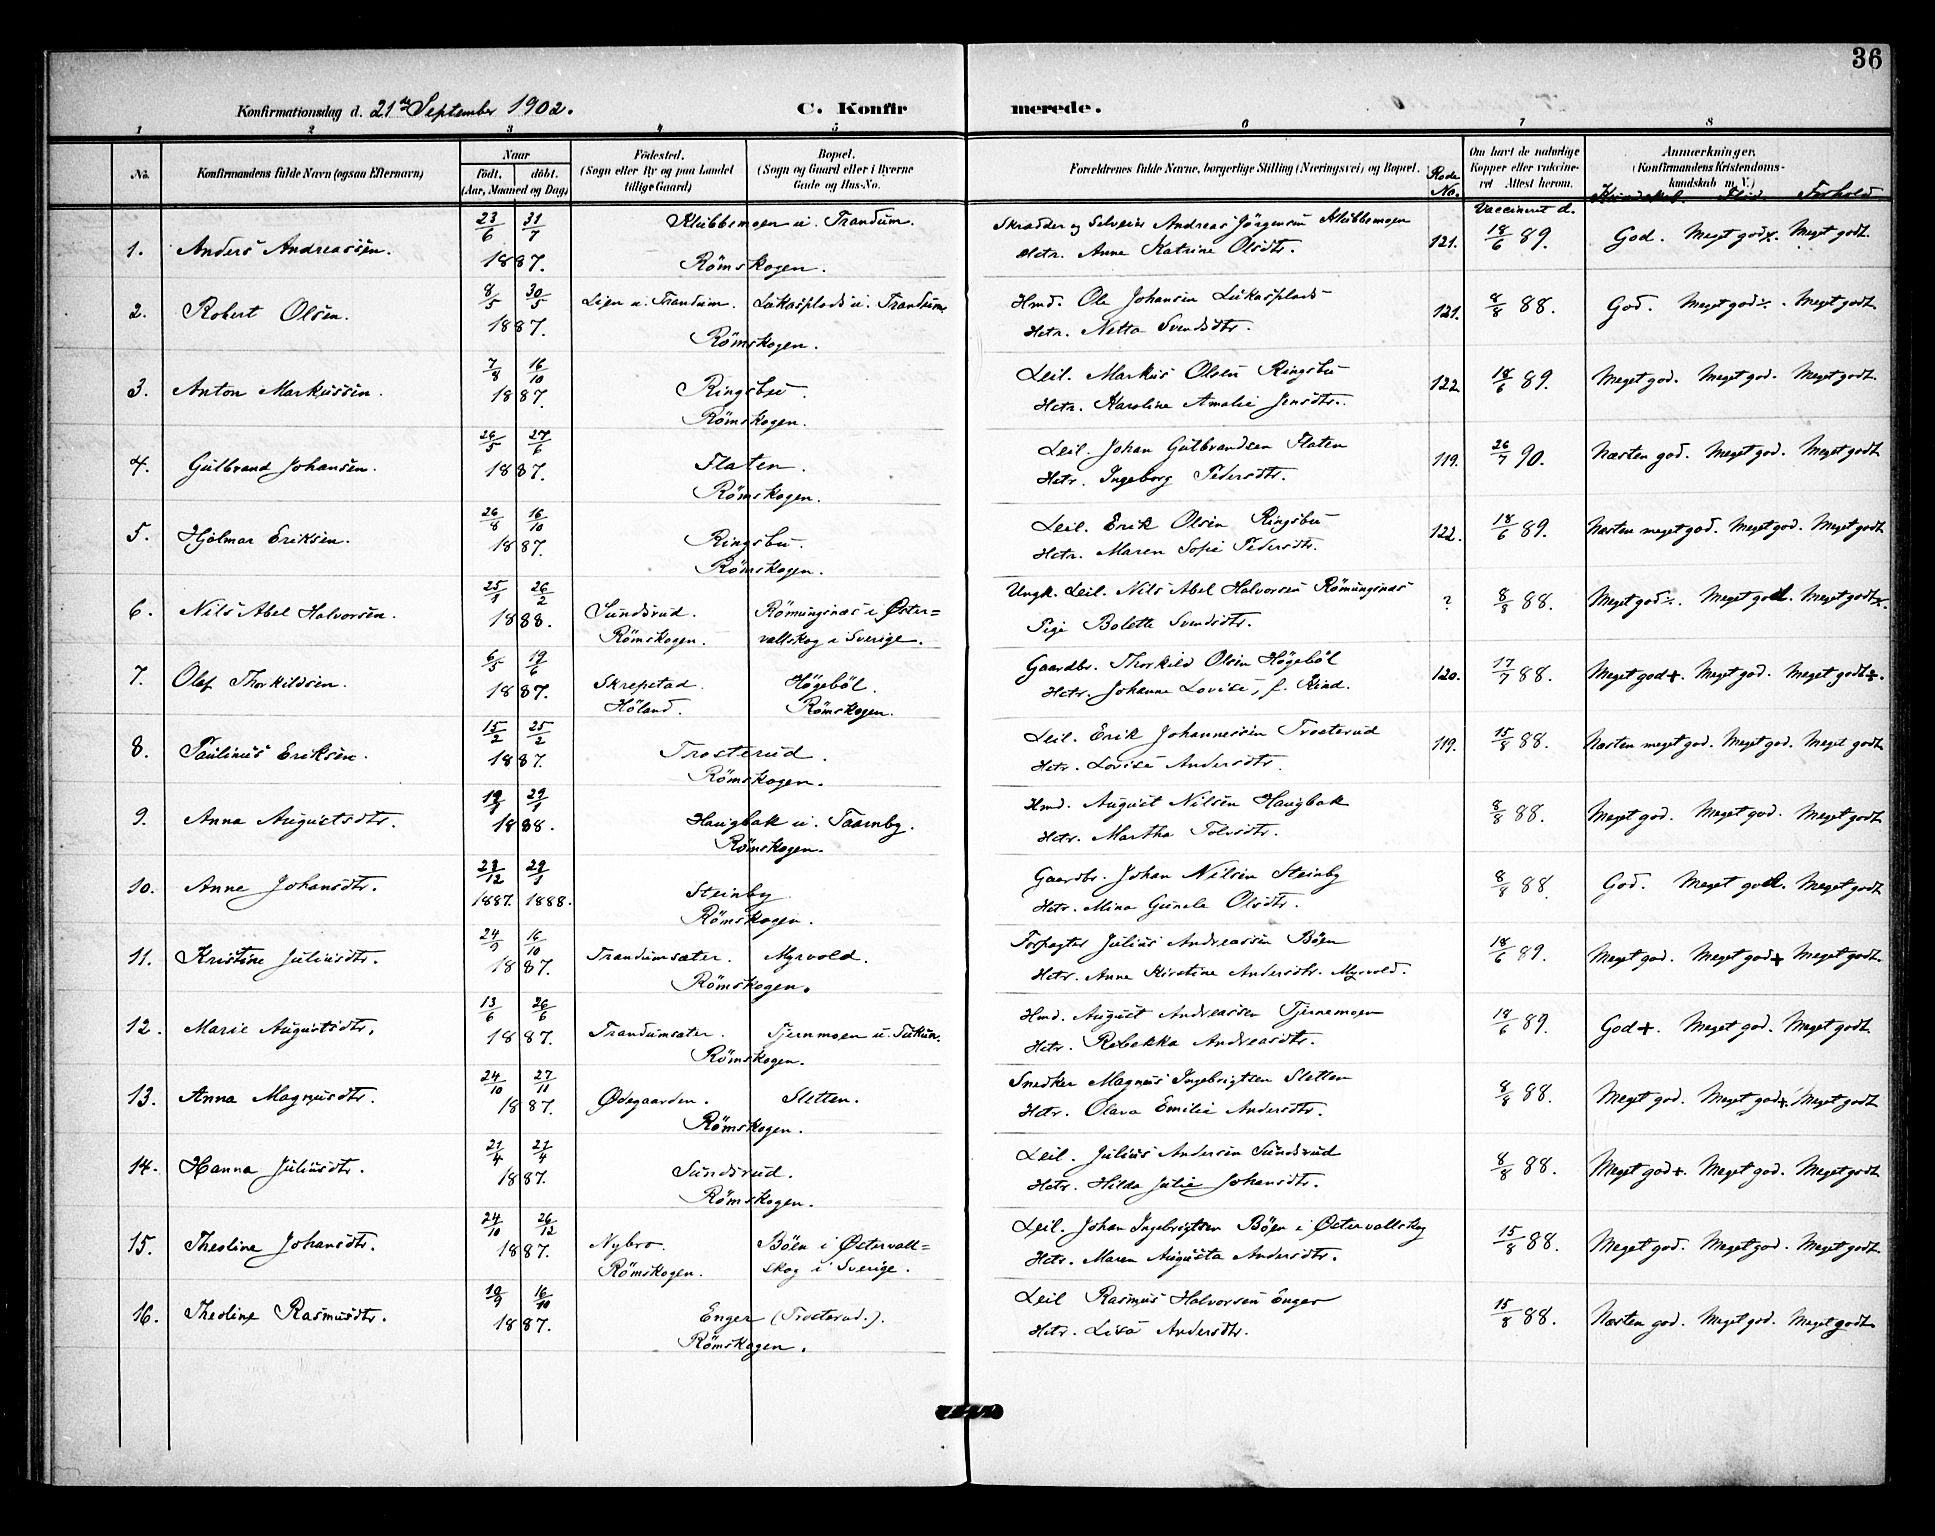 36
Konfirmationsdag d. 21de September 1902. C. Konfirmerede.
1 2 3 4 5 6 7 8
No. Konfirmandens fulde Navn (ogsaa Efternavn) Naar födt. döbt. (Aar, Maaned og Dag) Födested. (Sogn eller By og paa Landet tillige Gaard) Bopæl. (Sogn og Gaard eller i Byerne Gade og Hus-No. Forældrenes fulde Navne, borgerlige Stilling (Næringsvei) og Bopæl. Rode No. Om havt de naturlige Kopper eller vakcineret Attest herom. Anmærkninger. (Konfirmandens Kristendomskundskab m. V.)
Vaccineret d. Kundskab. Flid. Forhold
1. Anders Andreassen. 23/6 31/7 1887. Klubbemoen u. Trandum. Römskogen. Skrædder og Selveier Andreas Jörgensen Klubbemoen Hstr. Anne Katrine Olsdtr. 121. 18/6 89. God. Meget god+. Meget godt.
2. Robert Olsen. 8/5 30/5 1887. Lien u. Trandum. Lukasplads u. Trandum. Römskogen. Hmd. Ole Johansen Lukasplads Hstr. Netta Svendsdtr. 121. 8/8 88. God. Meget god÷. Meget godt.
3. Anton Markussen. 7/8 16/10 1887. Ringsbu. Römskogen. Leil. Markus Olsen Ringsbu Hstr. Karoline Amalie Jensdtr. 122 18/6 89. Meget god. Meget god. Meget godt.
4. Gulbrand Johansen. 26/5 27/6 1887. Flaten. Römskogen. Leil. Johan Gulbrandsen Flaten Hstr. Ingeborg Pedersdtr. 119. 26/7 90. Næsten god. Meget god. Meget godt
5. Hjalmar Eriksen. 26/8 16/10 1887. Ringsbu. Römskogen. Leil. Erik Olsen Ringsbu Hstr. Maren Sofie Pedersdtr. 122. 18/6 89. Næsten meget god. Meget god. Meget godt
6. Nils Abel Halvorsen. 25/1 26/2 1888. Sundsrud. Römskogen. Römungsnæs i Østervallskog i Sverige. Ungk. Leil. Nils Abel Halvorsen Römungsnæs Pige Bolette Svendsdtr. ? 8/8 88. Meget god÷. Meget god. Meget godt+.
7. Olaf Thorkildsen. 6/5 19/6 1887. Skrepstad. Höland. Högeböl. Römskogen. Gaardbr. Thorkild Olsen Högeböl Hstr. Johanne Lovise, f. Kind. 120. 17/7 88. Meget god+. Meget god. Meget godt+.
8. Paulinus Eriksen. 15/2 25/2 1887. Trosterud. Römskogen. Leil. Erik Johannessen Trosterud Hstr. Lovise Andersdtr. 119. 15/8 88. Næsten meget god. Meget god. Meget godt
9. Anna Augustsdtr. 19/1 29/1 1888. Haugbak u. Taarnby. Römskogen. Hmd. August Nilsen Haugbak Hstr. Martha Tolvsdtr. 8/8 88. Meget god. Meget god. Meget godt
10. Anne Johansdtr. 23/12 1887. 29/1 1888. Steinby Römskogen. Gaardbr. Johan Nilsen Steinby Hstr. Mina Gunela Olsdtr. 8/8 88 God. Meget god. Meget godt
11. Kristine Juliusdtr. 24/9 16/10 1887. Trandumsæter. Myrvold. Römskogen. Forpagter Julius Andreassen Böen Hstr. Anne Kirstine Andersdtr. Myrvold. 18/6 89. Meget god. Meget god+ Meget godt.
12. Marie Augustsdtr. 13/6 26/6 1887. Trandumsæter. Tjernmoen u. Römskogen. Hmd. August Andreassen Tjernemoen Hstr. Rebekka Andreasdtr. 18/6 89. God+. Meget god. Meget godt
13. Anna Magnusdtr. 24/10 27/11 1887. Ødegaarden. Sletten. Römskogen. Snedker Magnus Ingebrigtsen Sletten Hstr. Olava Emilie Andersdtr. 8/8 88. Meget god. Meget god+. Meget godt
14. Hanna Juliusdtr. 21/4 21/4 1887. Sundsrud. Römskogen. Leil. Julius Andersen Sundsrud Hstr. Hilda Julie Johansdtr. 8/8 88. Meget god+. Meget god. Meget godt
15. Theoline Johansdtr. 24/10 26/12 1887. Nybro. Römskogen. Böen i Østervallskog i Sverige. Leil. Johan Ingebrigtsen Böen i Østervallskog Hstr. Maren Augusta Andersdtr. 15/8 88. Meget god. Meget god. Meget godt
16. Theoline Rasmusdtr. 19/9 16/10 1887. Enger (Trosterud.). Römskogen. Leil Rasmus Halvorsen Enger Hstr. Lisa Andersdtr. 15/8 88. Næsten god. Meget god. Meget godt